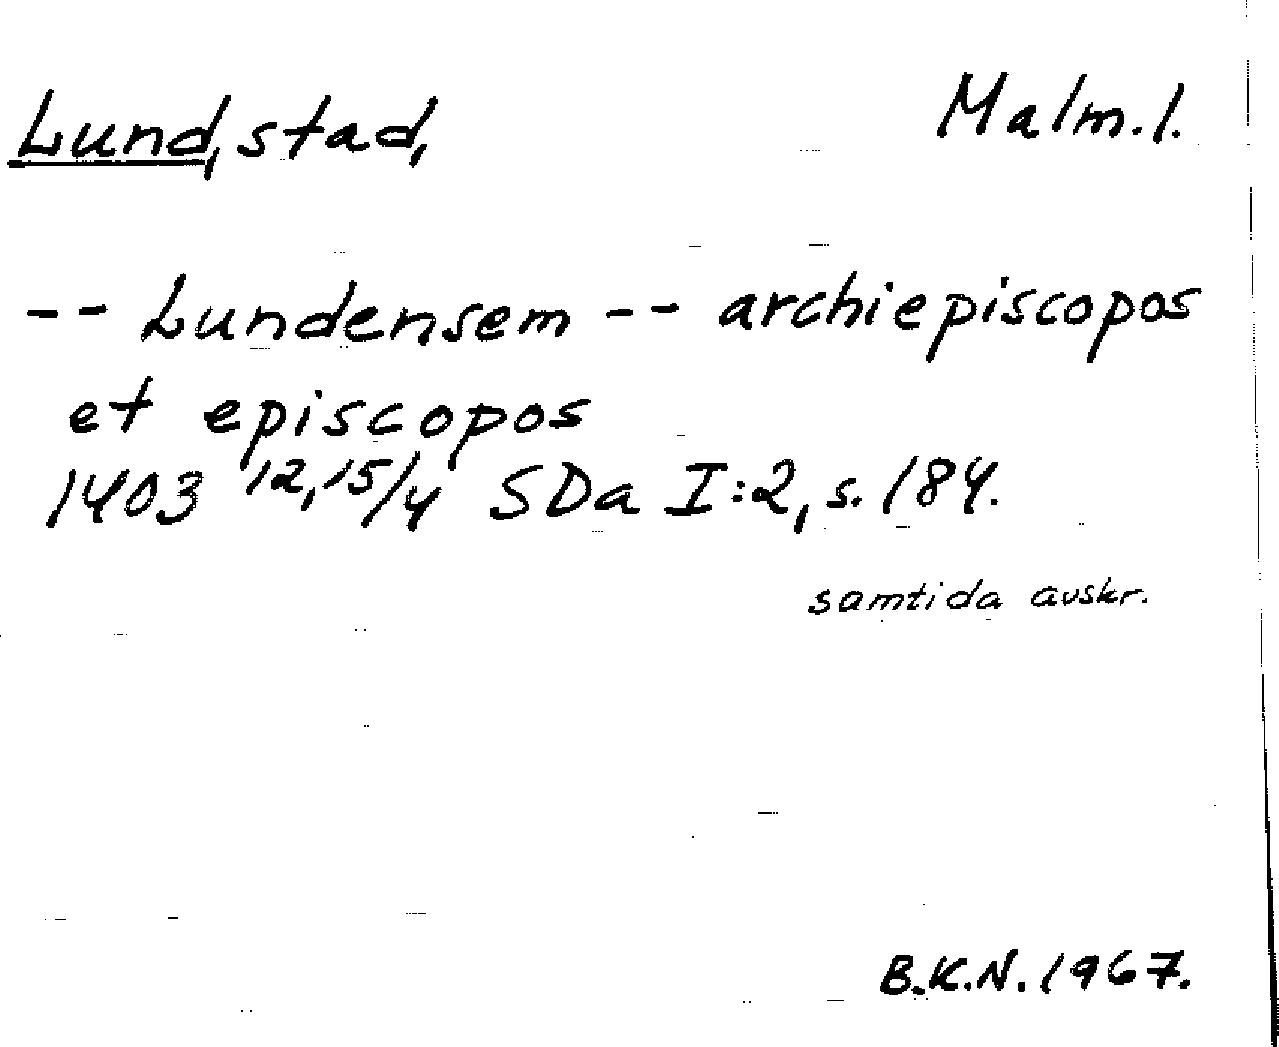 Lund, stad, Malm. l.
-- Lundensem -- archiepiscopos
et episcopos
1403 12,15/4 SDa I:2, s. 184.
samtida avskr.
B.K.N. 1967.